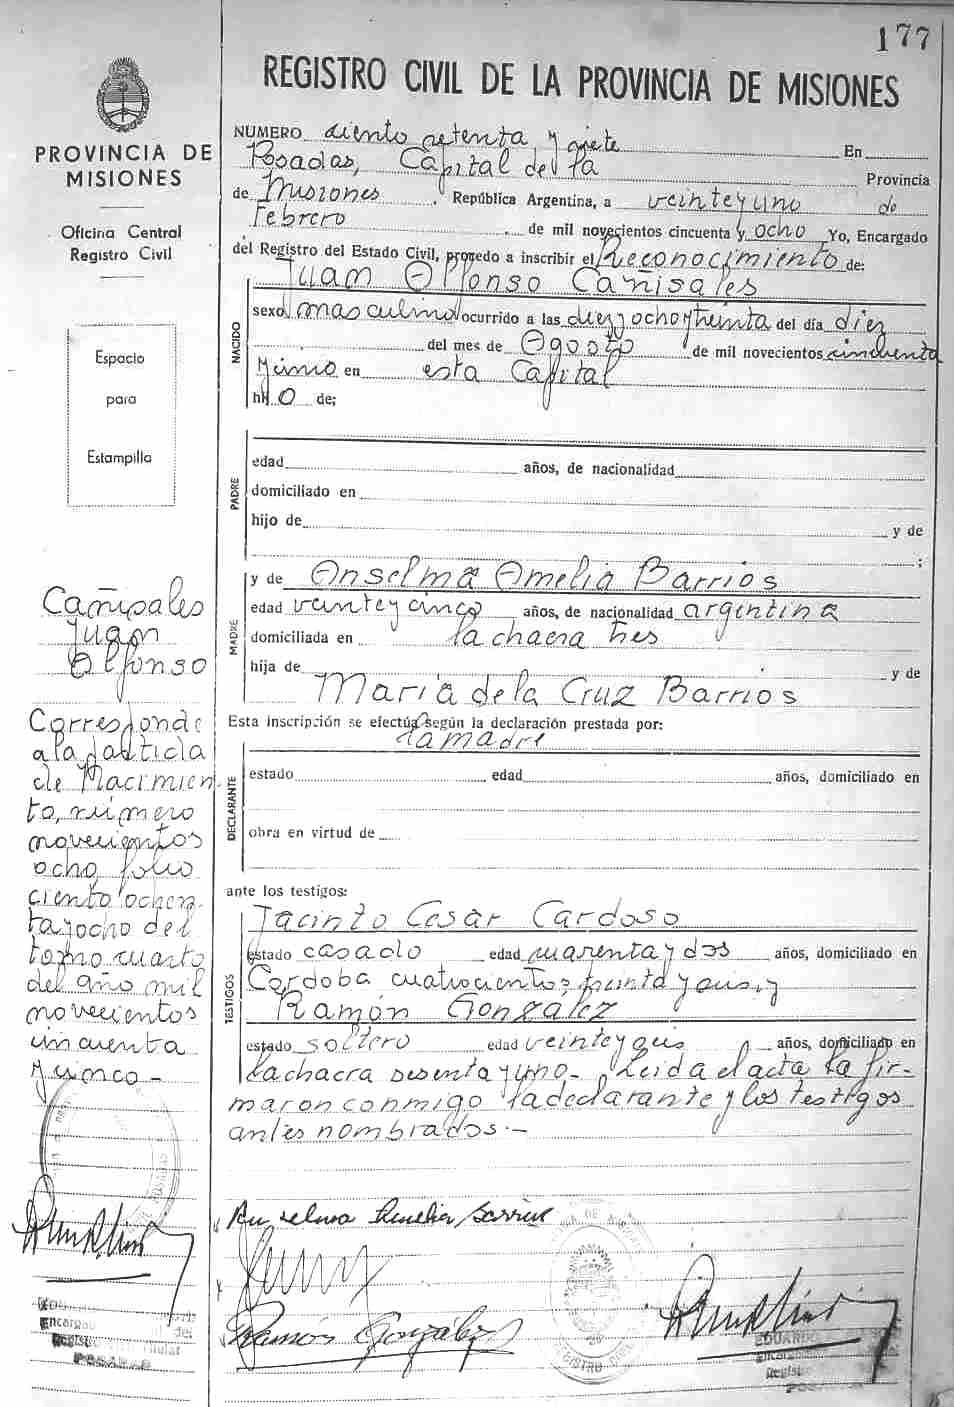 177
REGISTRO CIVIL DE LA PROVINCIA DE MISIONES
PROVINCIA DE
MISIONES
Oficina Central
Registro Civil
Espacio
para
Estampilla
Cañisales
Juan
Alfonso
Corresponde
a la partida
de Nacimien
to, número
novecientos
ocho folio
ciento ochen
ta y ocho del
tomo cuarto
del año mil
novecientos
cincuenta
y cinco -
NUMERO ciento setenta y siete En
Posadas, Capital de la Provincia
de Misiones, República Argentina, a veinte y uno de
Febrero de mil novecientos cincuenta y ocho Yo, Encargado
del Registro del Estado Civil, procedo a inscribir el Reconocimiento de:
NACIDO
Juan Alfonso Cañisales
sexo masculino ocurrido a las diez y ocho y treinta del día diez
del mes de Agosto de mil novecientos cincuenta
y cinco en esta Capital
h O de;
PADRE
edad años, de nacionalidad
domiciliado en
hijo de y de
;
MADRE
y de Anselma Amelia Barrios
edad veinte y cinco años, de nacionalidad argentina
domiciliada en la chacra tres
hija de y de
María de la Cruz Barrios
Esta inscripción se efectúa según la declaración prestada por:
la madre
DECLARANTE
estado edad años, domiciliado en
obra en virtud de
ante los testigos:
TESTIGOS
Jacinto Cesar Cardoso
estado casado edad cuarenta y dos años, domiciliado en
Cordoba cuatrocientos treinta y seis, y
Ramón González
estado soltero edad veinte y seis años, domiciliado en
la chacra sesenta y uno - Leida el acta la fir-
maron conmigo la declarante y los testigos
antes nombrados. -
Anselma Amelia Barrios
Ramón González
EDUARDO
Encargado
Registro
POSADAS